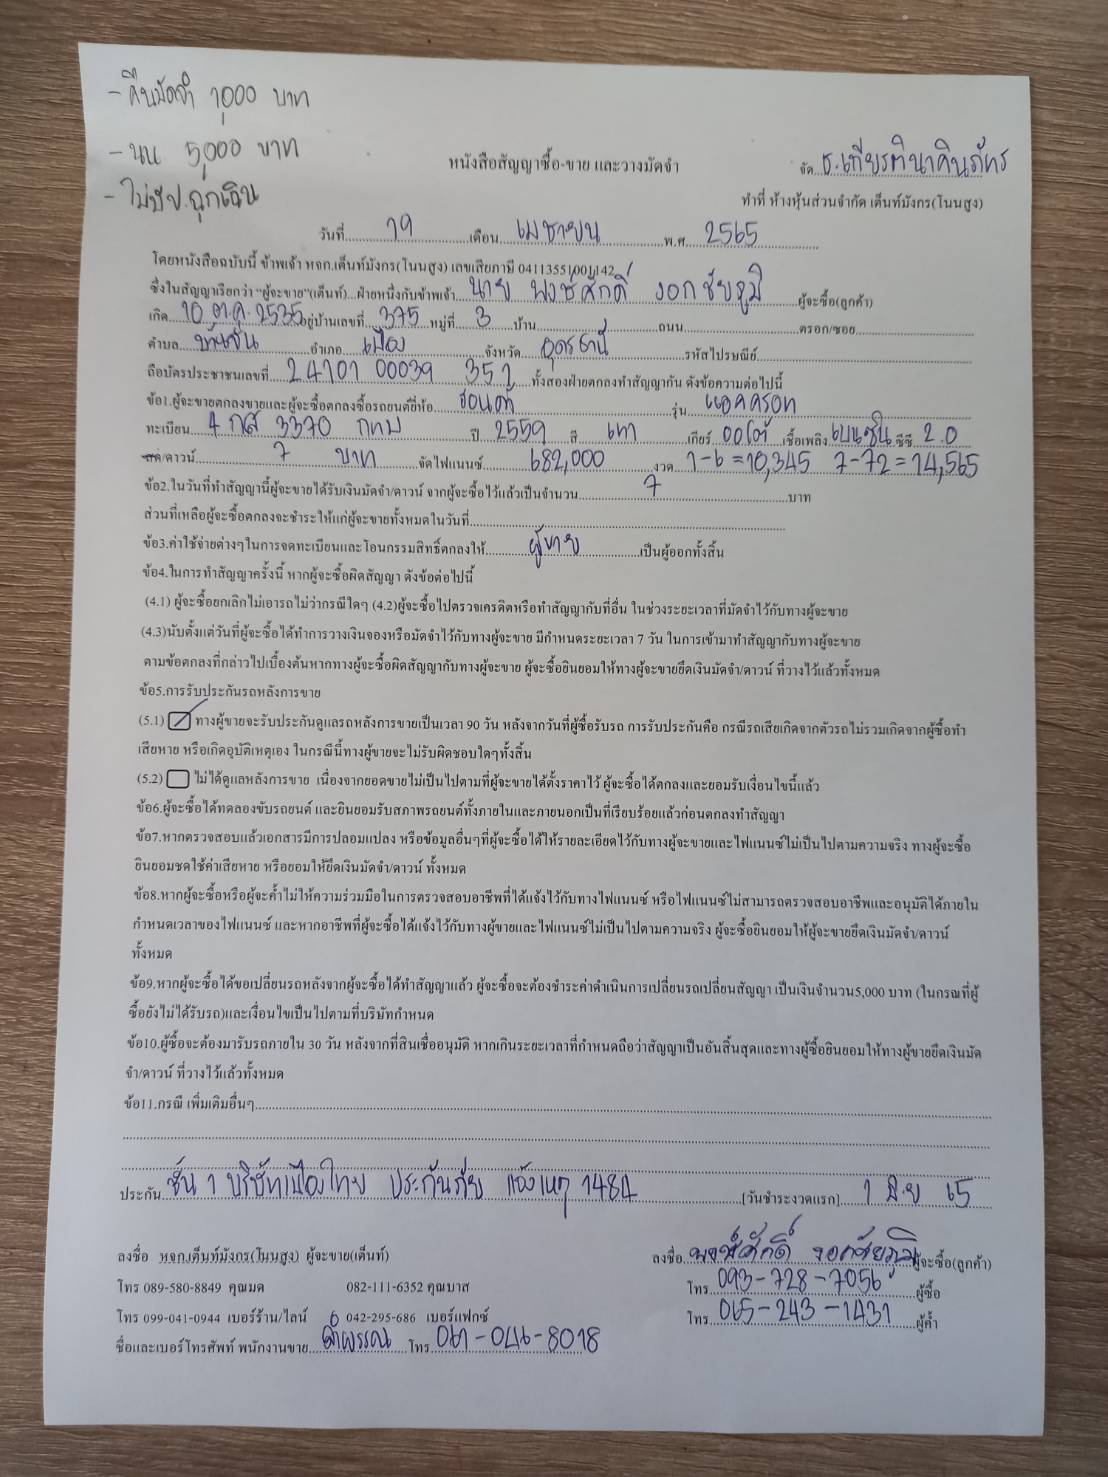 - คืนมัดจำ 1,000 บาท
- นน 5,000 บาท
- ไม่มีป.ฉุกเฉิน
หนังสือสัญญาซื้อ-ขาย และวางมัดจำ
จัด ธ.เกียรตินาคินภัทร
ทำที่ ห้างหุ้นส่วนจำกัด เต็นท์มังกร(โนนสูง)
วันที่ 19 เดือน เมษายน พ.ศ. 2565
โดยหนังสือฉบับนี้ ข้าพเจ้า หจก.เต็นท์มังกร(โนนสูง) เลขเสียภามี 04113551001142
ซึ่งในสัญญาเรียกว่า "ผู้จะขาย"(เต็นท์)...ฝ่ายหนึ่งกับข้าพเจ้า นาย พงษ์ศักดิ์ งอกชัยภูมิ ผู้จะซื้อ(ลูกค้า)
เกิด 10 ต.ค. 2535 อยู่บ้านเลขที่ 375 หมู่ที่ 3 บ้าน ถนน ตรอก/ซอย
ตำบล บ้านจั่น อำเภอ เมือง จังหวัด อุดรธานี รหัสไปรษณีย์
ถือบัตรประชาชนเลขที่ 24101 00039 351 ทั้งสองฝ่ายตกลงทำสัญญากัน ดังข้อความต่อไปนี้
ข้อ1.ผู้จะขายตกลงขายและผู้จะซื้อตกลงซื้อรถยนต์ยี่ห้อ ฮอนด้า รุ่น แอคคอร์ด
ทะเบียน 4 กส 3370 กทม ปี 2559 สี เทา เกียร์ ออโต้ เชื้อเพลิง เบนซิน ซีซี 2.0
สด/ดาวน์ 7 บาท จัดไฟแนนซ์ 682,000 งวด 1-6 = 10,345 7-72 = 14,565
ข้อ2.ในวันที่ทำสัญญานี้ผู้จะขายได้รับเงินมัดจำ/ดาวน์ จากผู้จะซื้อไว้แล้วเป็นจำนวน 7 บาท
ส่วนที่เหลือผู้จะซื้อตกลงจะชำระให้แก่ผู้จะขายทั้งหมดในวันที่
ข้อ3.ค่าใช้จ่ายต่างๆในการจดทะเบียนและโอนกรรมสิทธิ์ตกลงให้ ผู้ขาย เป็นผู้ออกทั้งสิ้น
ข้อ4.ในการทำสัญญาครั้งนี้ หากผู้จะซื้อผิดสัญญา ดังข้อต่อไปนี้
(4.1) ผู้จะซื้อยกเลิกไม่เอารถไม่ว่ากรณีใดๆ (4.2)ผู้จะซื้อไปตรวจเครดิตหรือทำสัญญากับที่อื่น ในช่วงระยะเวลาที่มัดจำไว้กับทางผู้จะขาย
(4.3)นับตั้งแต่วันที่ผู้จะซื้อได้ทำการวางเงินจองหรือมัดจำไว้กับทางผู้จะขาย มีกำหนดระยะเวลา 7 วัน ในการเข้ามาทำสัญญากับทางผู้จะขาย
ตามข้อตกลงที่กล่าวไปเบื้องต้นหากทางผู้จะซื้อผิดสัญญากับทางผู้จะขาย ผู้จะซื้อยินยอมให้ทางผู้จะขายยึดเงินมัดจำ/ดาวน์ ที่วางไว้แล้วทั้งหมด
ข้อ5.การรับประกันรถหลังการขาย
(5.1) ทางผู้ขายจะรับประกันดูแลรถหลังการขายเป็นเวลา 90 วัน หลังจากวันที่ผู้ซื้อรับรถ การรับประกันคือ กรณีรถเสียเกิดจากตัวรถไม่รวมเกิดจากผู้ซื้อทำ
เสียหาย หรือเกิดอุบัติเหตุเอง ในกรณีนี้ทางผู้ขายจะไม่รับผิดชอบใดๆทั้งสิ้น
(5.2) ไม่ได้ดูแลหลังการขาย เนื่องจากยอดขายไม่เป็นไปตามที่ผู้จะขายได้ตั้งราคาไว้ ผู้จะซื้อได้ตกลงและยอมรับเงื่อนไขนี้แล้ว
ข้อ6.ผู้จะซื้อได้ทดลองขับรถยนต์ และยินยอมรับสภาพรถยนต์ทั้งภายในและภายนอกเป็นที่เรียบร้อยแล้วก่อนตกลงทำสัญญา
ข้อ7.หากตรวจสอบแล้วเอกสารมีการปลอมแปลง หรือข้อมูลอื่นๆที่ผู้จะซื้อได้ให้รายละเอียดไว้กับทางผู้จะขายและไฟแนนซ์ไม่เป็นไปตามความจริง ทางผู้จะซื้อ
ยินยอมชดใช้ค่าเสียหาย หรือยอมให้ยึดเงินมัดจำ/ดาวน์ ทั้งหมด
ข้อ8.หากผู้จะซื้อหรือผู้จะค้ำไม่ให้ความร่วมมือในการตรวจสอบอาชีพที่ได้แจ้งไว้กับทางไฟแนนซ์ หรือไฟแนนซ์ไม่สามารถตรวจสอบอาชีพและอนุมัติได้ภายใน
กำหนดเวลาของไฟแนนซ์ และหากอาชีพที่ผู้จะซื้อได้แจ้งไว้กับทางผู้ขายและไฟแนนซ์ไม่เป็นไปตามความจริง ผู้จะซื้อยินยอมให้ผู้จะขายยึดเงินมัดจำ/ดาวน์
ทั้งหมด
ข้อ9.หากผู้จะซื้อได้ขอเปลี่ยนรถหลังจากผู้จะซื้อได้ทำสัญญาแล้ว ผู้จะซื้อจะต้องชำระค่าดำเนินการเปลี่ยนรถเปลี่ยนสัญญา เป็นเงินจำนวน5,000 บาท (ในกรณที่ผู้
ซื้อยังไม่ได้รับรถ)และเงื่อนไขเป็นไปตามที่บริษัทกำหนด
ข้อ10.ผู้ซื้อจะต้องมารับรถภายใน 30 วัน หลังจากที่สินเชื่ออนุมัติ หากเกินระยะเวลาที่กำหนดถือว่าสัญญาเป็นอันสิ้นสุดและทางผู้ซื้อยินยอมให้ทางผู้ขายยึดเงินมัด
จำ/ดาวน์ ที่วางไว้แล้วทั้งหมด
ข้อ11.กรณี เพิ่มเติมอื่นๆ
ประกัน ชั้น 1 บริษัทเมืองไทย ประกันภัย แจ้งเหตุ 1484 [วันชำระงวดแรก] 1 มิ.ย 65
ลงชื่อ หจก.เต็นท์มังกร(โนนสูง) ผู้จะขาย(เต็นท์)
ลงชื่อ พงษ์ศักดิ์ งอกชัยภูมิ ผู้จะซื้อ(ลูกค้า)
โทร 089-580-8849 คุณมด 082-111-6352 คุณบาส
โทร 093-728-7056 ผู้ซื้อ
โทร 099-041-0944 เบอร์ร้าน/ไลน์ 042-295-686 เบอร์แฟกซ์
โทร 065-243-1431 ผู้ค้ำ
ชื่อและเบอร์โทรศัพท์ พนักงานขาย ลำพรรณ โทร 061-046-8018